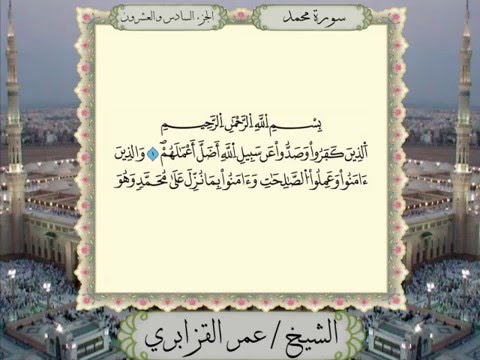 سورة محمد
الجزء السادس والعشرون
بِسْمِ اللَّهِ الرَّحْمَٰنِ الرَّحِيمِ
الذِينَ كَفَرُواْ وَصَدُّواْ عَن سَبِيلِ اللَّهِ أَضَلَّ أَعْمَٰلَهُمْ ١ وَالذِينَ
ءَامَنُواْ وَعَمِلُواْ الصَّٰلِحَٰتِ وَءَامَنُواْ بِمَا نُزِّلَ عَلَىٰ مُحَمَّدٍ وَهُوَ
الشيخ / عمر القزابري